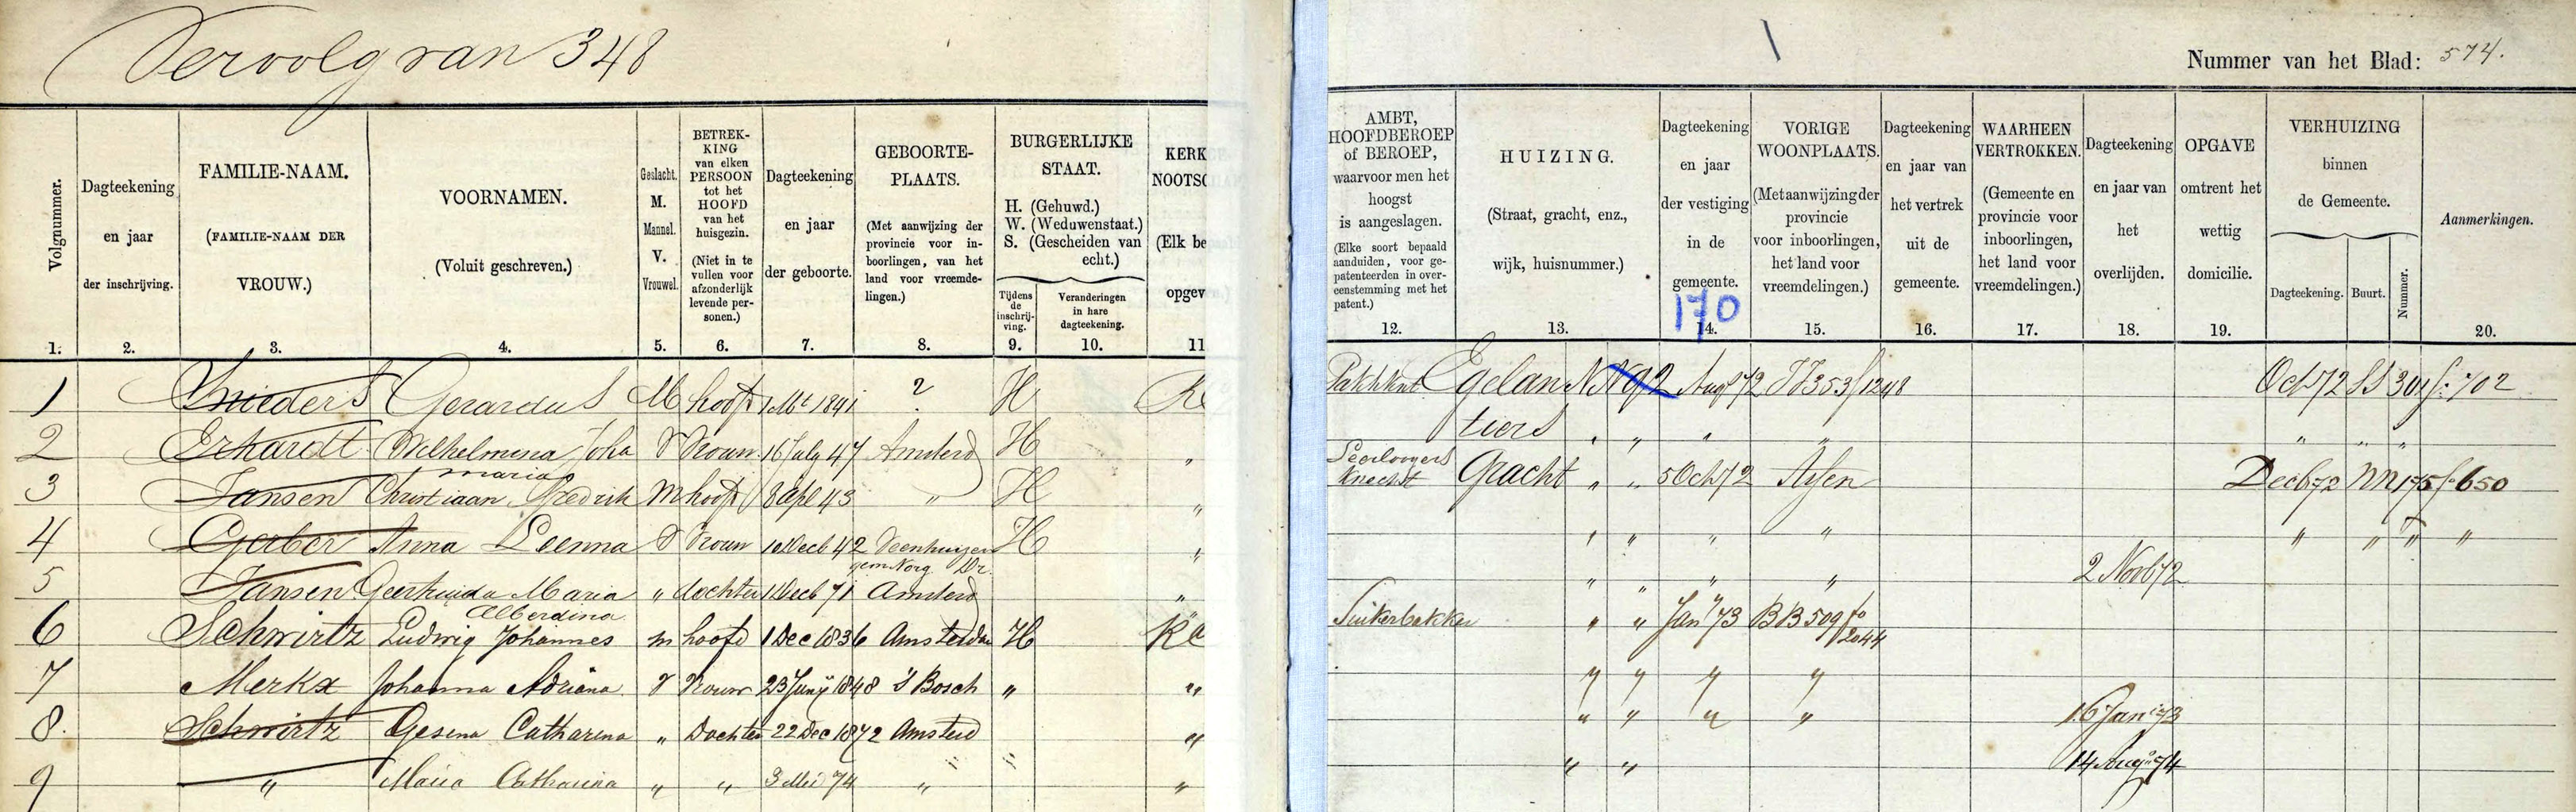 Vervolg van 348
Nummer van het Blad: 574.
Volgnummer.
Dagteekening
en jaar
der inschrijving.
FAMILIE-NAAM.
(FAMILIE-NAAM DER
VROUW.)
VOORNAMEN.
(Voluit geschreven.)
Geslacht.
M.
Mannel.
V.
Vrouwel.
BETREK-
KING
van elken
PERSOON
tot het
HOOFD
van het
huisgezin.
(Niet in te
vullen voor
afzonderlijk
levende per-
sonen.)
Dagteekening
en jaar
der geboorte.
GEBOORTE-
PLAATS.
(Met aanwijzing der
provincie voor in-
boorlingen, van het
land voor vreemde-
lingen.)
BURGERLIJKE
STAAT.
H. (Gehuwd.)
W. (Weduwenstaat.)
S. (Gescheiden van
echt.)
Tijdens
de
inschrij-
ving.
Veranderingen
in hare
dagteekening.
KERK
NOOTSC
(Elk be
opgev
AMBT,
HOOFDBEROEP
of BEROEP,
waarvoor men het
hoogst
is aangeslagen.
(Elke soort bepaald
aanduiden, voor ge-
patenteerden in over-
eenstemming met het
patent.)
HUIZING.
(Straat, gracht, enz.,
wijk, huisnummer.)
Dagteekening
en jaar
der vestiging
in de
gemeente.
170
VORIGE
WOONPLAATS.
(Met aanwijzing der
provincie
voor inboorlingen,
het land voor
vreemdelingen.)
Dagteekening
en jaar van
het vertrek
uit de
gemeente.
WAARHEEN
VERTROKKEN.
(Gemeente en
provincie voor
inboorlingen,
het land voor
vreemdelingen.)
Dagteekening
en jaar van
het
overlijden.
OPGAVE
omtrent het
wettig
domicilie.
VERHUIZING
binnen
de Gemeente.
Dagteekening.
Buurt.
Nummer.
Aanmerkingen.
1. 2. 3. 4. 5. 6. 7. 8. 9. 10. 11 12. 13. 14. 15. 16. 17. 18. 19. 20.
1 Snieders Gerardus M hoofd 1841 ? H Egelan Aug 72 353 f 1248 Oct 72 SS 301 f. 702
2 Erhardt Wilhelmina Joha V Vrouw 16 July 47 Amsterd H " tiers " " " " " " "
maria
3 Jansen Christiaan Fredrik M hoofd 8 Apl 43 " H " knecht Gracht " " 5 Oct 72 Assen Decb 72 NN 175 f 650
4 Gerber Anna Leenna V Vrouw Decb 42 Veenhuizen H " " " " " " " " "
gem Norg Dr.
5 Jansen Geertruida Maria " dochter Decb 71 Amsterd " " " " " 2 Novb 72
Alberdina
6 Schwirtz Ludwig Johannes m hoofd 1 Dec 1836 Amsterdam H Suikerbakker " " Jany 73 BB 509 fo 2044
7 Merkx Johanna Adriana V Vrouw 23 Junij 1848 's Bosch " " " " " "
8. Schwirtz Gesina Catharina " Dochter 22 Dec 1872 Amsterd " " " " " 16 Jan: 73
9 " Maria Catharina " " 3 Mei 74 " " " " 14 Aug 74